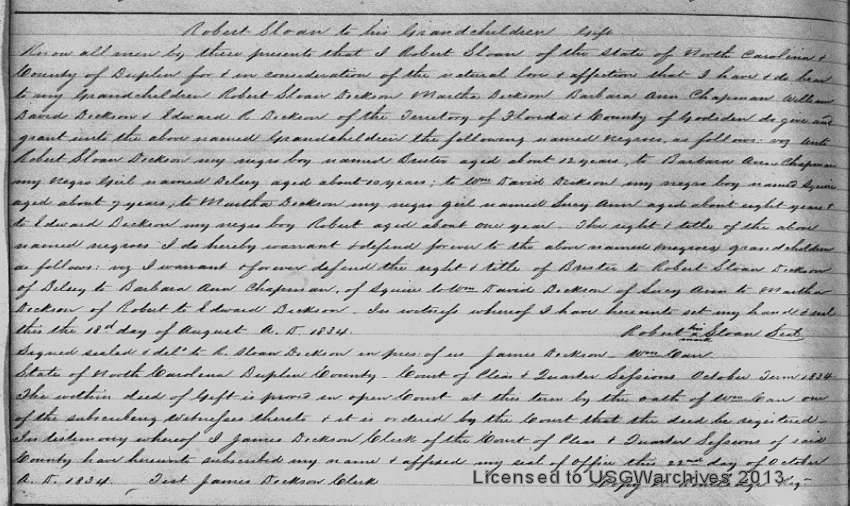 Robert Sloan to his Grandchildren Gift
Know all men by these presents that I Robert Sloan of the State of North Carolina &
County of Duplin for & in consideration of the natural love & affection that I have & do bear
to my Grandchildren Robert Sloan Dickson Martha Dickson Barbara Ann Chapman William
David Dickson & Edward R. Dickson of the Territory of Florida & County of Godsden do give and
grant unto the above named Grandchildren the following named negroes, as follows: viz unto
Robert Sloan Dickson my negro boy named Brister aged about 12 years, to Barbara Ann Chapman
my Negro Girl named Delsey aged about 10 years; to Wm David Dickson my negro boy named Squire
aged about 7 years, to Martha Dickson my negro girl named Suey Ann aged about eight years &
to Edward Dickson my negro boy Robert aged about one year. The right & title of the above
named negroes I do hereby warrant & defend forever to the above named negroes grandchildren
as follows: viz I warrant & forever defend the right & title of Brister to Robert Sloan Dickson
of Delsey to Barbara Ann Chapman, of Squire to Wm David Dickson of Suey Ann to Martha
Dickson of Robert to Edward Dickson. In witness whereof I have hereunto set my hand & seal
this the 18th day of August A. D. 1834. Robert his mark Sloan Seal
Signed sealed & deld to R. Sloan Dickson in pres. of us James Dickson - Wm Carr
State of North Carolina Duplin County - Court of Pleas & Quarter Sessions October Term 1834
The within deed of Gift is proved in open Court at this term by the oath of Wm Carr one
of the subscribing witnesses thereto & it is ordered by the Court that the deed be registered
In testimony whereof I James Dickson Clerk of the Court of Pleas & Quarter Sessions of said
County have hereunto subscribed my name & affixed my seal of Office this 22nd day of October
A. D. 1834. Test James Dickson Clerk
Licensed to USGWarchives 2013